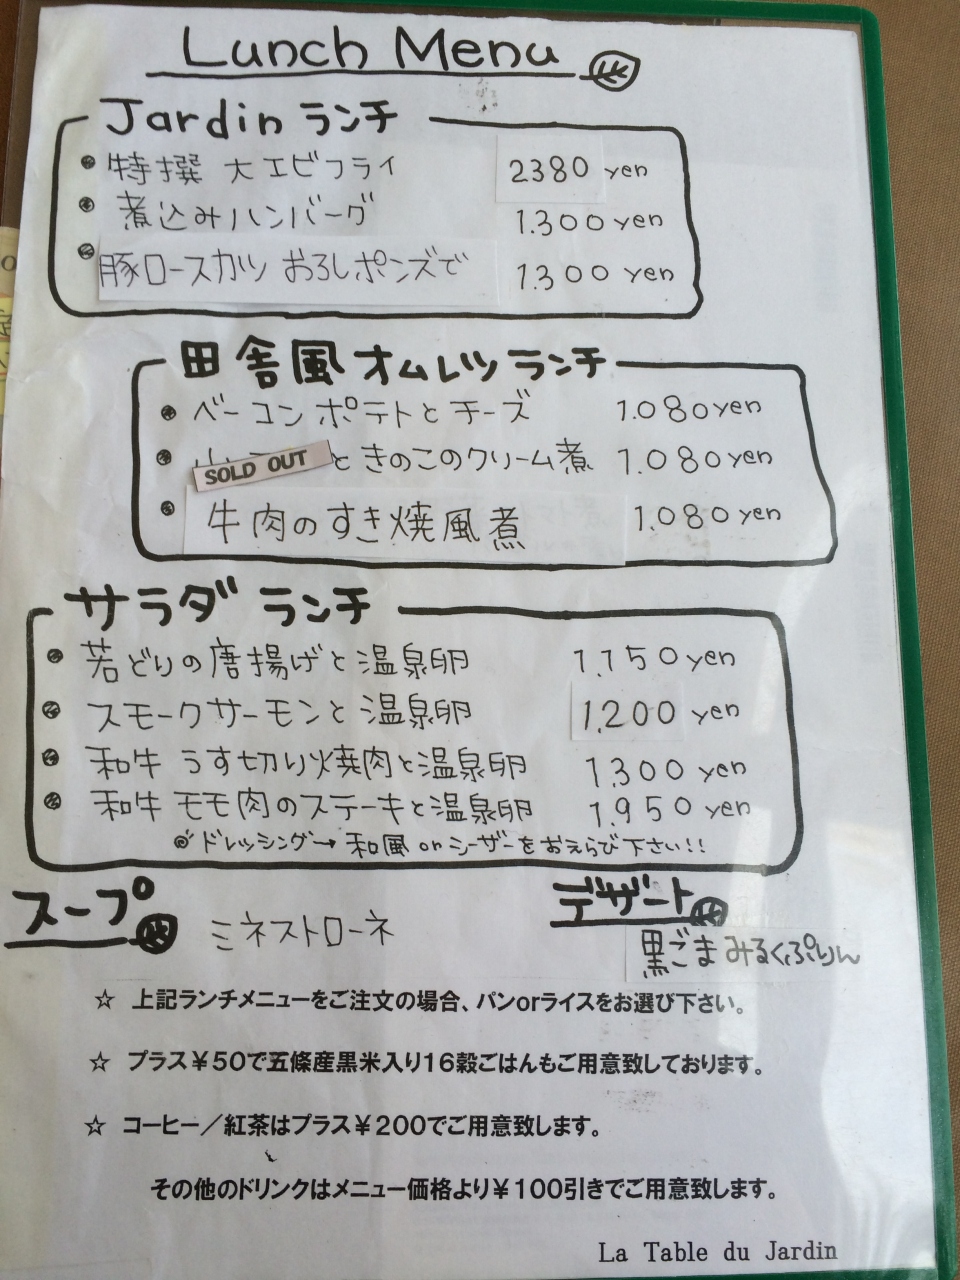 Lunch Menu
Jardin ランチ
特撰 大エビフライ 2380 yen
煮込みハンバーグ 1.300 yen
豚ロースカツ おろしポンズで 1.300 yen
田舎風オムレツ ランチ
ベーコン ポテトとチーズ 1.080 yen
SOLD OUT と きのこのクリーム煮 1.080 yen
牛肉のすき焼風煮 1.080 yen
サラダ ランチ
若どりの唐揚げと温泉卵 1.150 yen
スモークサーモンと温泉卵 1.200 yen
和牛 うす切り焼肉と温泉卵 1.300 yen
和牛 モモ肉のステーキと温泉卵 1.950 yen
ドレッシング→和風 or シーザーをおえらび下さい!!
スープ ミネストローネ
デザート
黒ごまみるくぷりん
☆ 上記ランチメニューをご注文の場合、パンorライスをお選び下さい。
☆ プラス¥50で五條産黒米入り16穀ごはんもご用意致しております。
☆ コーヒー／紅茶はプラス¥200でご用意致します。
その他のドリンクはメニュー価格より¥100引きでご用意致します。
La Table du Jardin